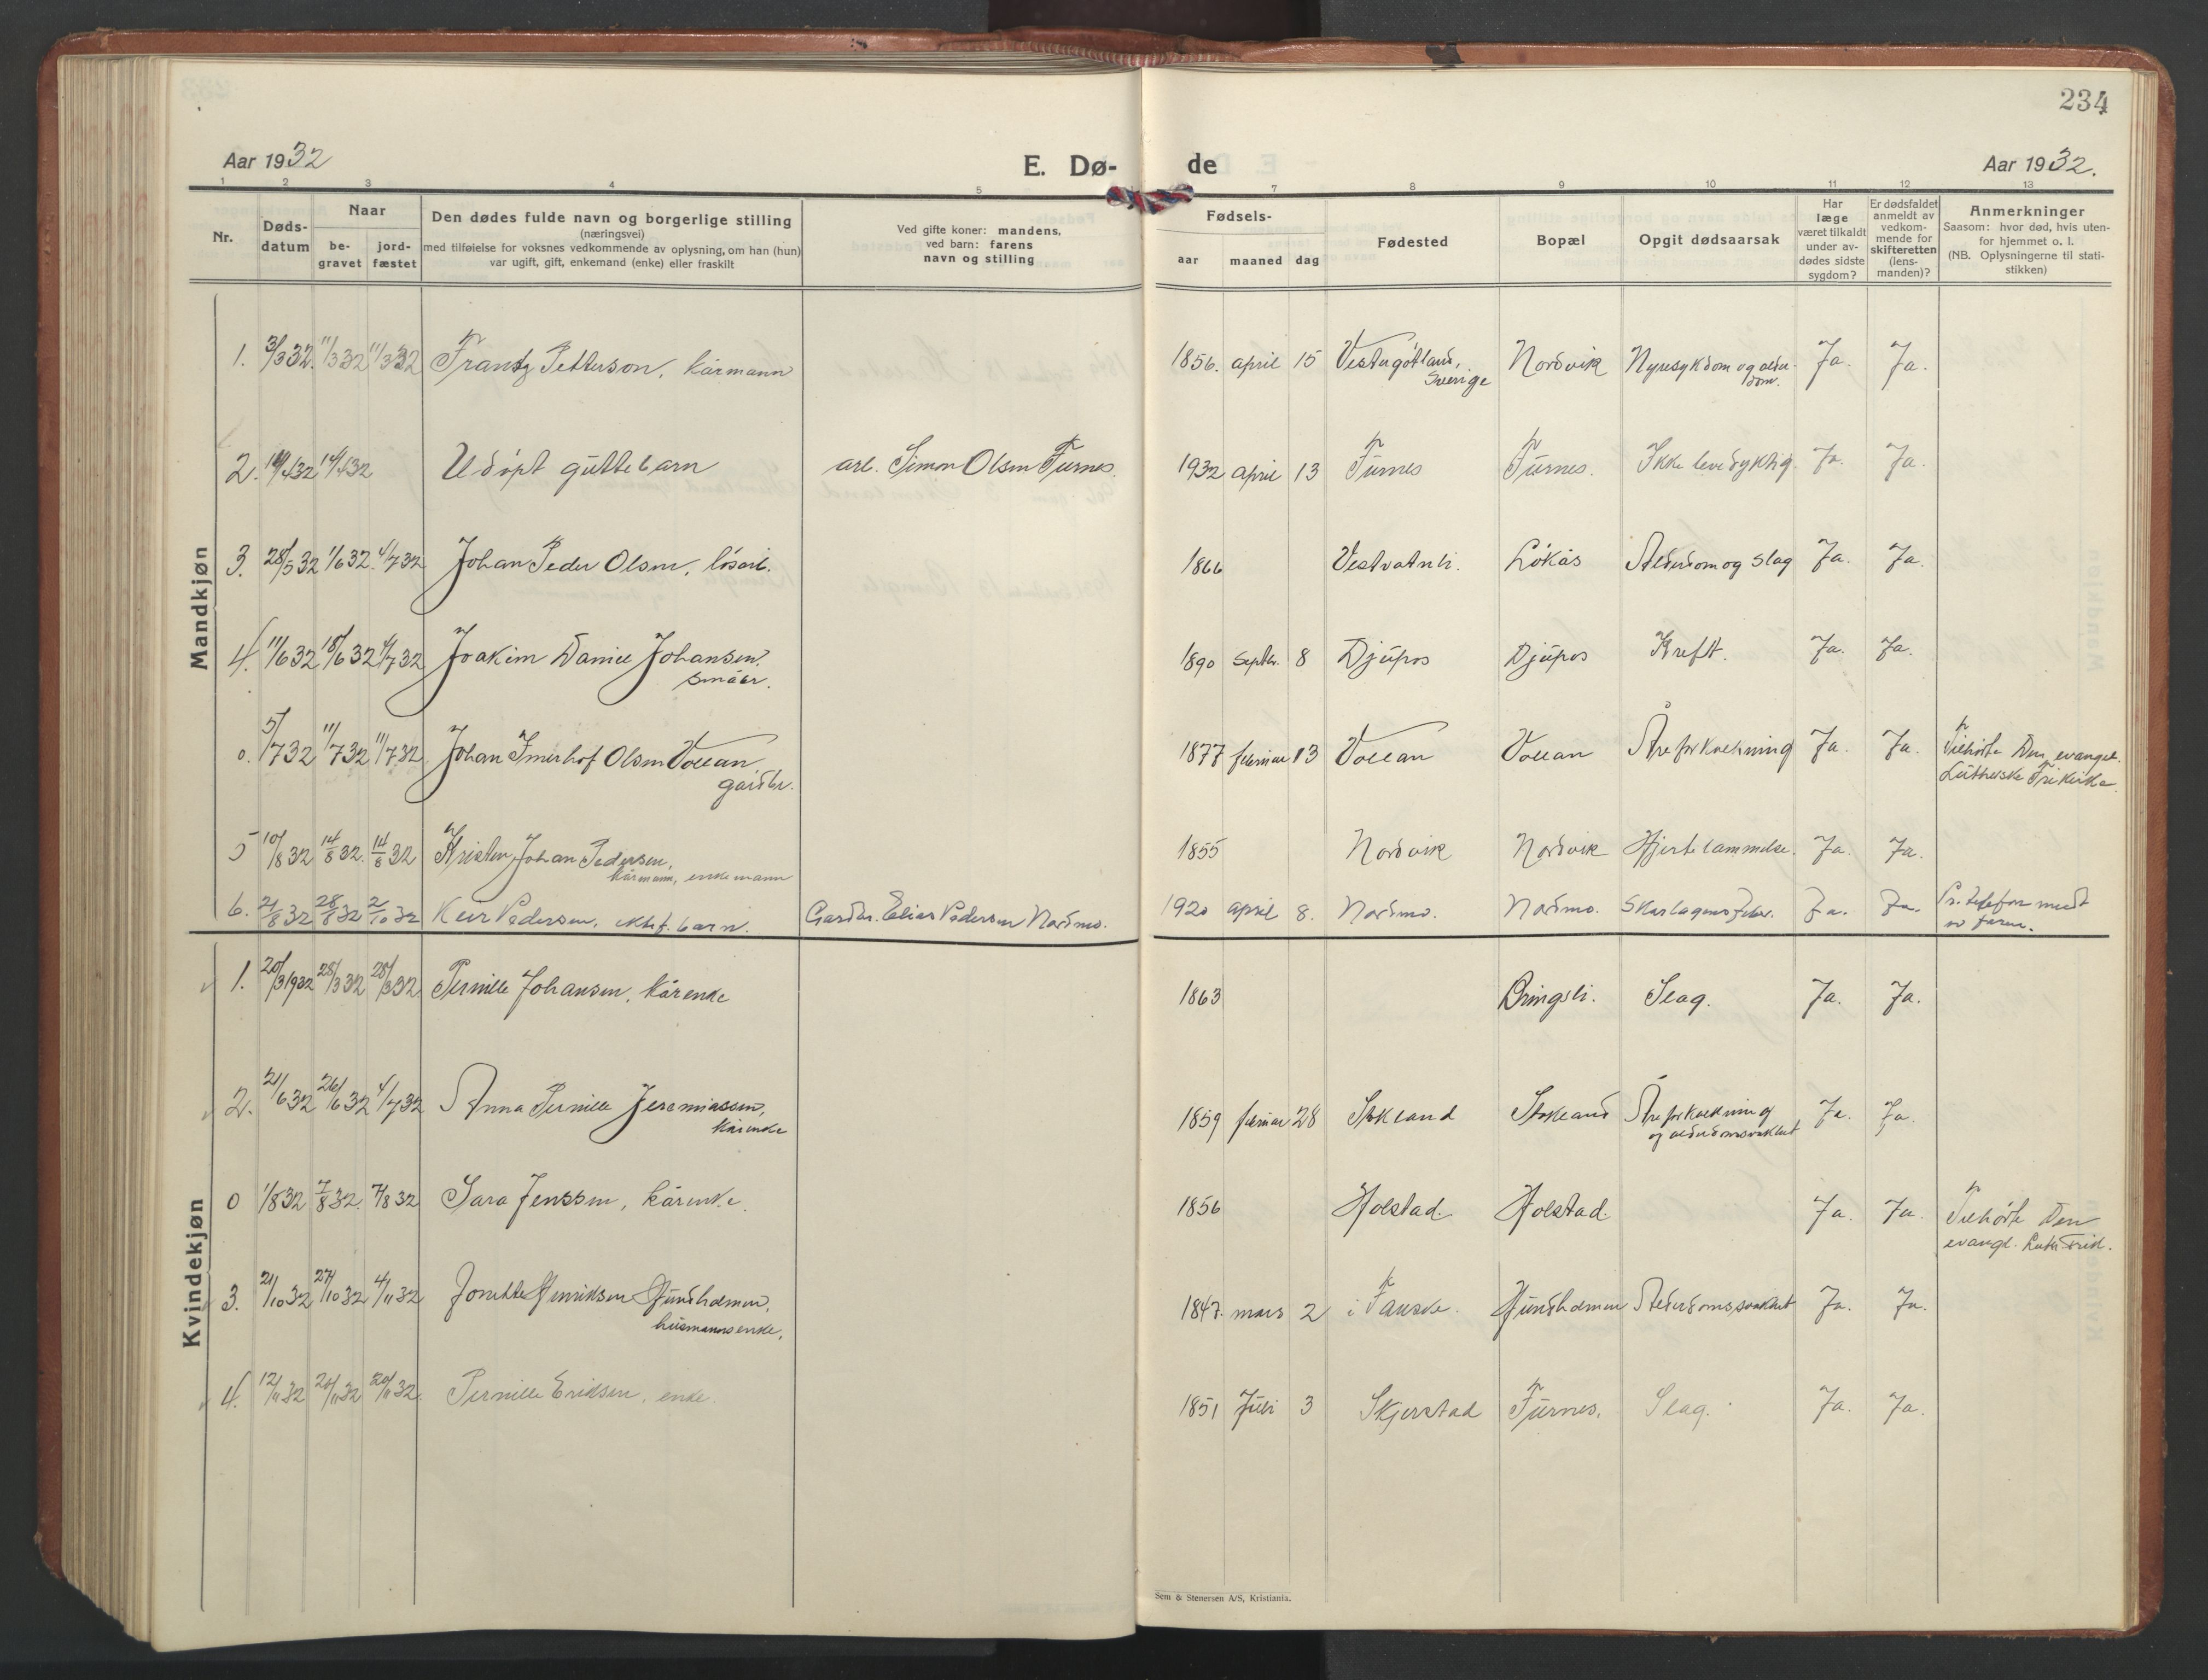 234
Aar 1932
E. Dø-
de
Aar 1932.
1 2 3 4 5 7 8 9 10 11 12 13
Nr.
Døds-
datum
Naar
be-
gravet
jord-
fæstet
Den dødes fulde navn og borgerlige stilling
(næringsvei)
med tilføielse for voksnes vedkommende av oplysning, om han (hun)
var ugift, gift, enkemand (enke) eller fraskilt
Ved gifte koner: mandens,
ved barn: farens
navn og stilling
Fødsels-
aar
maaned
dag
Fødested
Bopæl
Opgit dødsaarsak
Har
læge
været tilkaldt
under av-
dødes sidste
sygdom?
Er dødsfaldet
anmeldt av
vedkom-
mende for
skifteretten
(lens-
manden)?
Anmerkninger
Saasom: hvor død, hvis uten-
for hjemmet o. l.
(NB. Oplysningerne til stati-
stikken)
Mandkjøn
1. 3/3 32. 11/3 32 11/3 32 Frantz Petterson, kårmann 1856. april 15 Vestergötland, Sverige Nordvik Nyresykdom og alder-
dom. Ja. Ja.
2. 14/4 32 Udöpt guttebarn arb. Simon Olsen Furnes. 1932 april 13 Furnes Furnes. Ikke levedyktig. Ja. Ja.
3. 28/5 32 1/6 32. 4/7 32 Johan Peder Olsen, lösarb. 1866 Vestvatnli. Lökås Alderdom og slag Ja. Ja.
4. 11/6 32 18/6 32 4/7 32 Joakim Daniel Johansen,
småbr. 1890 septbr. 8 Djupos Djupos Kreft. Ja. Ja.
0. 5/7 32 11/7 32 11/7 32 Johan Imerhof Olsen Vollan
gårdbr. 1877 februar 13 Vollan Vollan Åreforkalkning Ja. Ja. Tilhörte Den evangel.
Lutherske Frikirke.
5 10/8 32 14/8 32. 14/8 32 Kristen Johan Pedersen,
kårmann, enkemann 1855 Nordvik Nordvik Hjertelammelse. Ja. Ja.
6. 21/8 32 28/8 32 2/10 32 Pedersen, barn. Gardbr. Elias Pedersen Nordmo. 1920 april 8. Nordmo. Nordmo. Skarlagensfeber. Ja. Ja. Pr. telefon meldt
Kvindekjøn
1. 20/3 1932 28/3 32 28/3 32. Pernille Johansen, kårenke 1863 Bringsli. Slag. Ja. Ja.
2. 21/6 32 26/6 32 4/7 32 Anna Pernille Jeremiassen,
kårenke 1859 februar 28 Stokland Stokland Åreforkalkning
og alderdomssvakhet Ja. Ja.
0 1/8 32 7/8 32. 7/8 32 Sara Jenssen, kårenke. 1856 Holstad. Holstad. Ja. Ja. Tilhörte Den
evangl. Luth. Frik.
3. 21/10 32 27/10 32 4/11 32 Henriksen Hundholmen,
husmannsenke. 1847. mars 2 i Fauske. Hundholmen Alderdomssvakhet Ja. Ja.
4. 12/11 32 20/11 32 20/11 32. Pernille Eriksen, enke. 1851 Juli 3 Skjerstad Furnes. Slag. Ja. Ja.
Sem & Stenersen A/S, Kristiania.